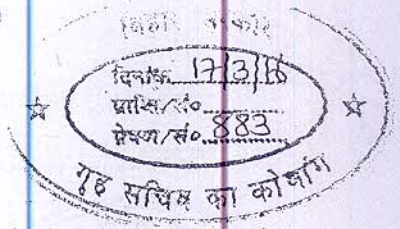 बिहार सरकार
दिनांक 17/3/16
प्राप्ति/सं०
प्रेषण/सं० 883
गृह सचिव का कोषांग